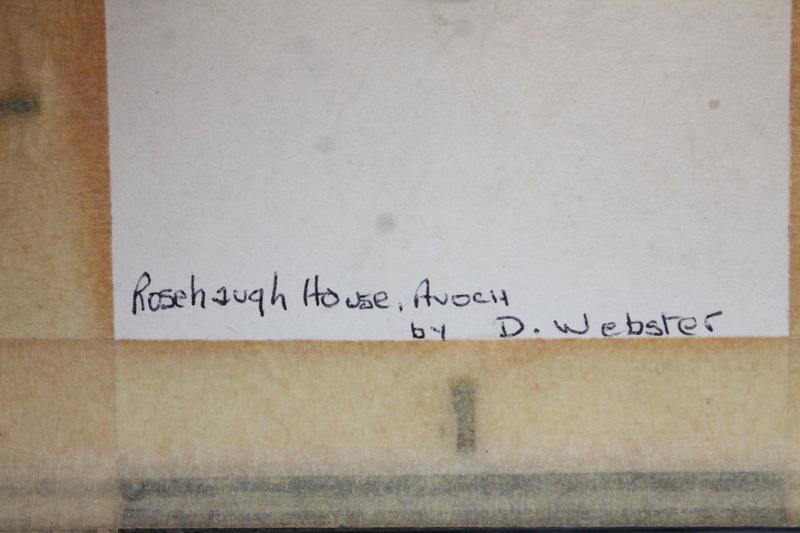 Rosehaugh House, Avoch
by D. Webster